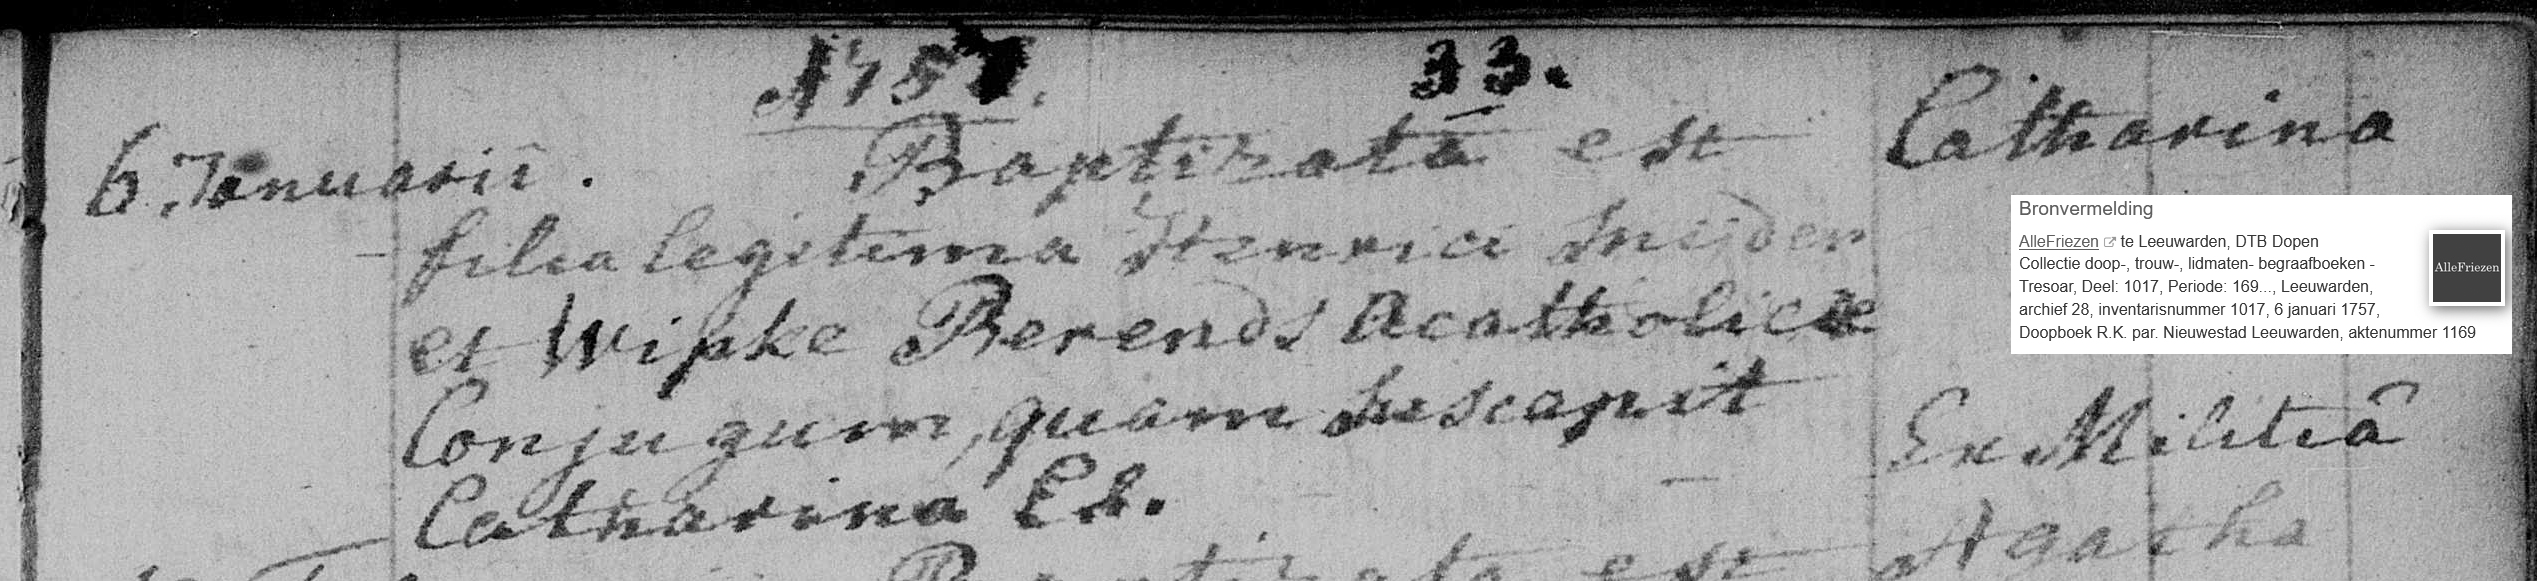 1757. 33.
6. Januarii. Baptizata est Catharina
filia legitima Henrici Snijder
et Wipke Berends Acatholicæ
Conjugum, quam suscepit Ex Militiâ
Catharina Eb.
Baptizata est Agatha
Bronvermelding
AlleFriezen te Leeuwarden, DTB Dopen
Collectie doop-, trouw-, lidmaten- begraafboeken -
Tresoar, Deel: 1017, Periode: 169..., Leeuwarden,
archief 28, inventarisnummer 1017, 6 januari 1757,
Doopboek R.K. par. Nieuwestad Leeuwarden, aktenummer 1169
AlleFriezen